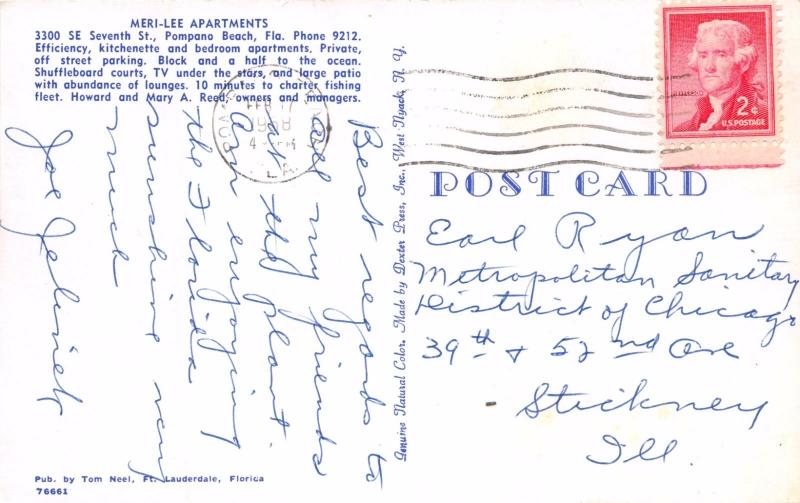 MERI-LEE APARTMENTS
3300 SE Seventh St., Pompano Beach, Fla. Phone 9212.
Efficiency, kitchenette and bedroom apartments. Private,
off street parking. Block and a half to the ocean.
Shuffleboard courts, TV under the stars, and large patio
with abundance of lounges. 10 minutes to charter fishing
fleet. Howard and Mary A. Reed, owners and managers.
Best regards to
all my friends
at the plant.
Am enjoying
the Florida
sunshine very
much
Joe Jelinek
Pub. by Tom Neel, Ft. Lauderdale, Florida
76661
Genuine Natural Color. Made by Dexter Press, Inc., West Nyack, N. Y.
FEB 17
1958
FLA.
2¢
U.S. POSTAGE
POST CARD
Earl Ryan
Metropolitan Sanitary
District of Chicago
39th + 52nd Ave
Stickney
Ill.